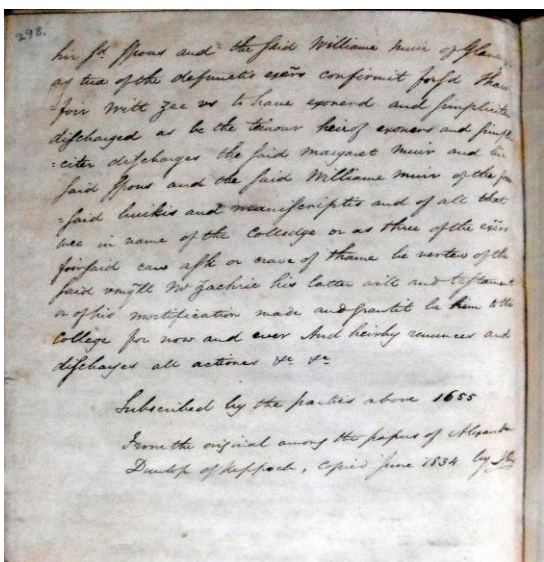 298.
hir sd spous and the said Williame Muir of Glan
as tua of the defuncts exers confirmit forsd Thair
=foir Witt zee us to have exonerd and simpliciter
discharged as be the tenour heirof exoners and simpli
=citer discharges the said Margaret Muir and hir
said spous and the said Williame Muir of the for
=said buikis and manuscriptis and of all that
wee in name of the Colledge or as three of the exers
foirsaid can ask or crave of thame be vertew of the
said Mr Zachrie his latter will and testament
or of his mortification made and grantit be him to the
College for now and ever And heirby renunces and
discharges all actiones &c &c
Subscribed by the parties above 1655
From the original among the papers of Alexander
Dunlop of Keppoch, copied June 1834 by